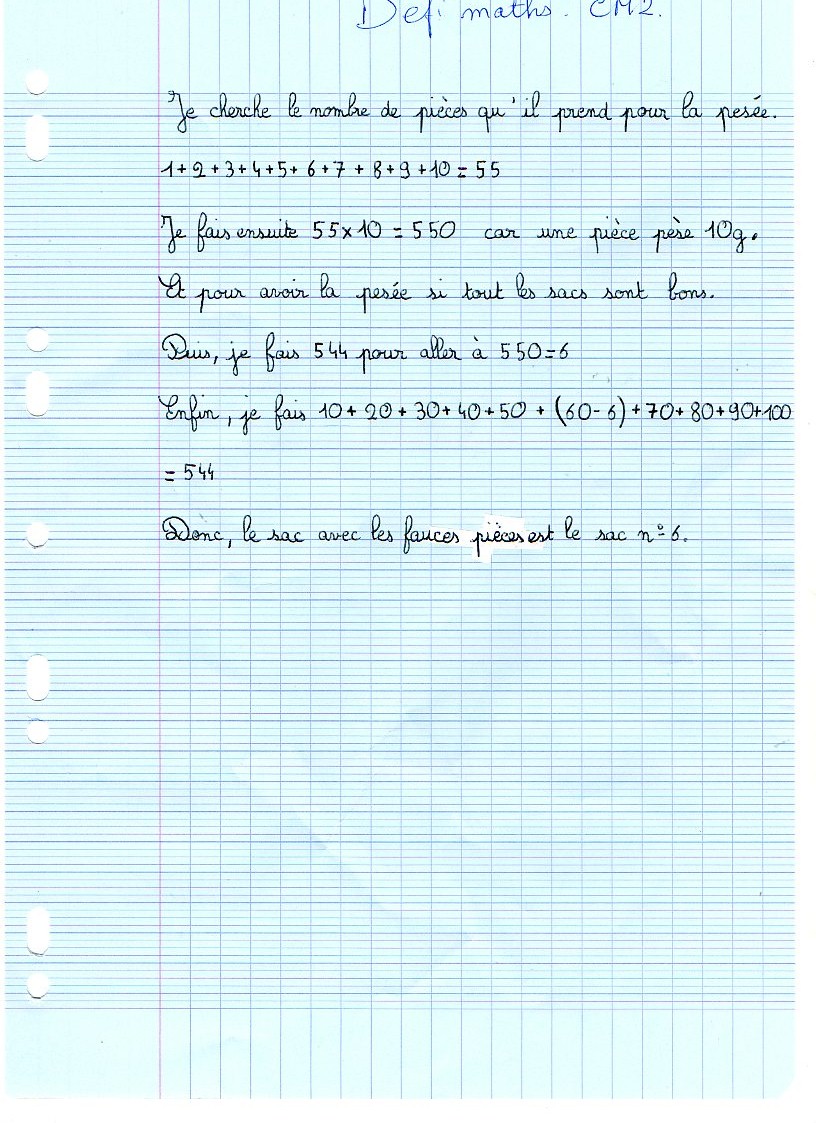 Défi maths. CM2.
Je cherche le nombre de pièces qu'il prend pour la pesée.
1+2+3+4+5+6+7+8+9+10=55
Je fais ensuite 55x10=550 car une pièce pèse 10g.
Et pour avoir la pesée si tout les sacs sont bons.
Puis, je fais 544 pour aller à 550=6
Enfin, je fais 10+20+30+40+50+(60-6)+70+80+90+100
=544
Donc, le sac avec les fauces pièces est le sac n°6.